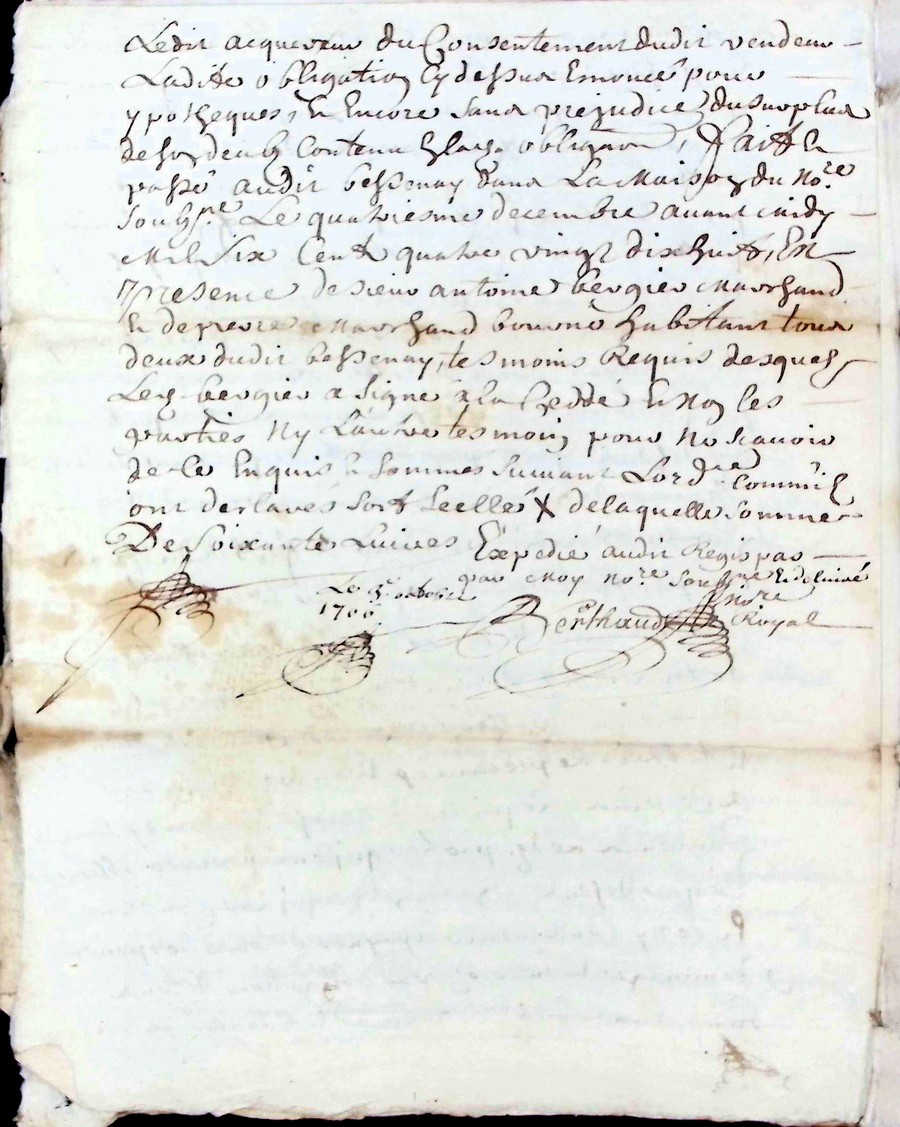 Ledit acquereur du Consentement dudit vendeur
Ladite obligation Cy dessus Enoncé pour
ypotheques, Et Encore sans prejudice du surplus
de son deub Contenu En lad. obligaon, fait Et
passé audit bessenay dans La Maison du No.re
soub.ne Le quatriesme decembre avant midy
Mil Six Cent quatre vingt dix huit, En
presence de sieur antoine bergier Marchand
Et de pierre Marchand bonné habitant tous
deux dudit bessenay, tesmoins Requis desquels
Led. bergier a signé a la Ceddé Et Non les
parties Ny L'autre tesmoin pour Ne scavoir
de Ce Enquis Et Sommes suivant L'ord.ce Comm'il
ont desclaré soit scellé X de laquelle somme
De soixante Livres Expedié audit Regispas
par Moy No.re soub.ne Et delivré
Le 5.e octobre
1700
Berthaud
No.re
Royal